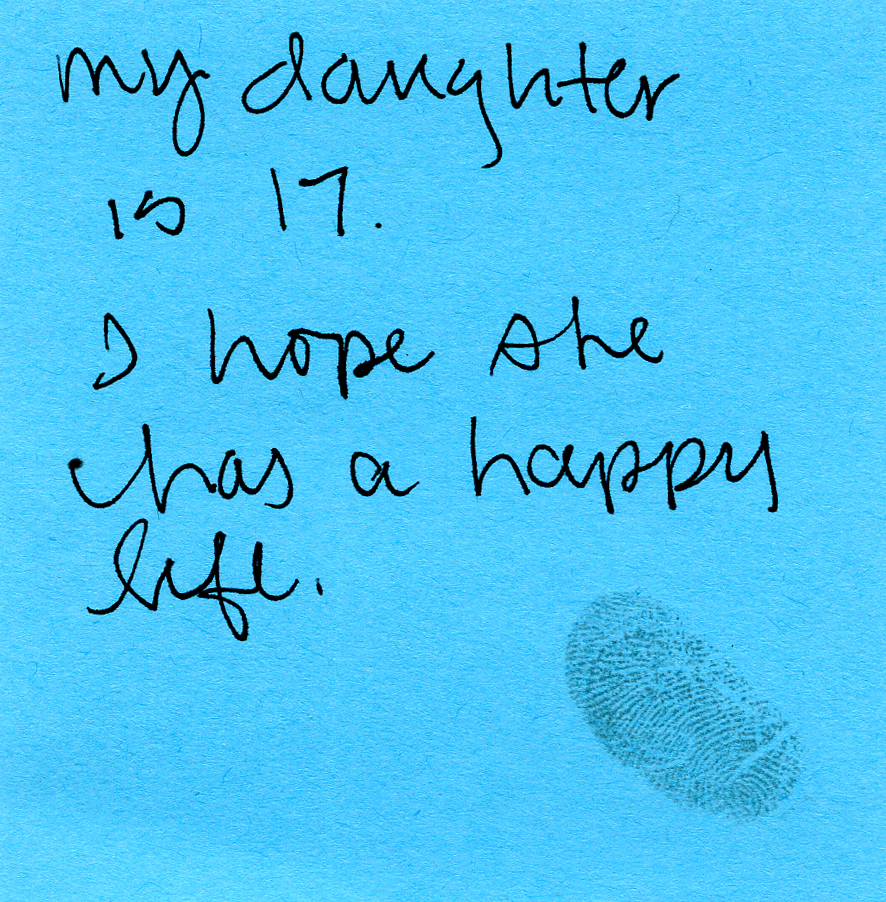 my daughter
is 17.
I hope she
has a happy
life.